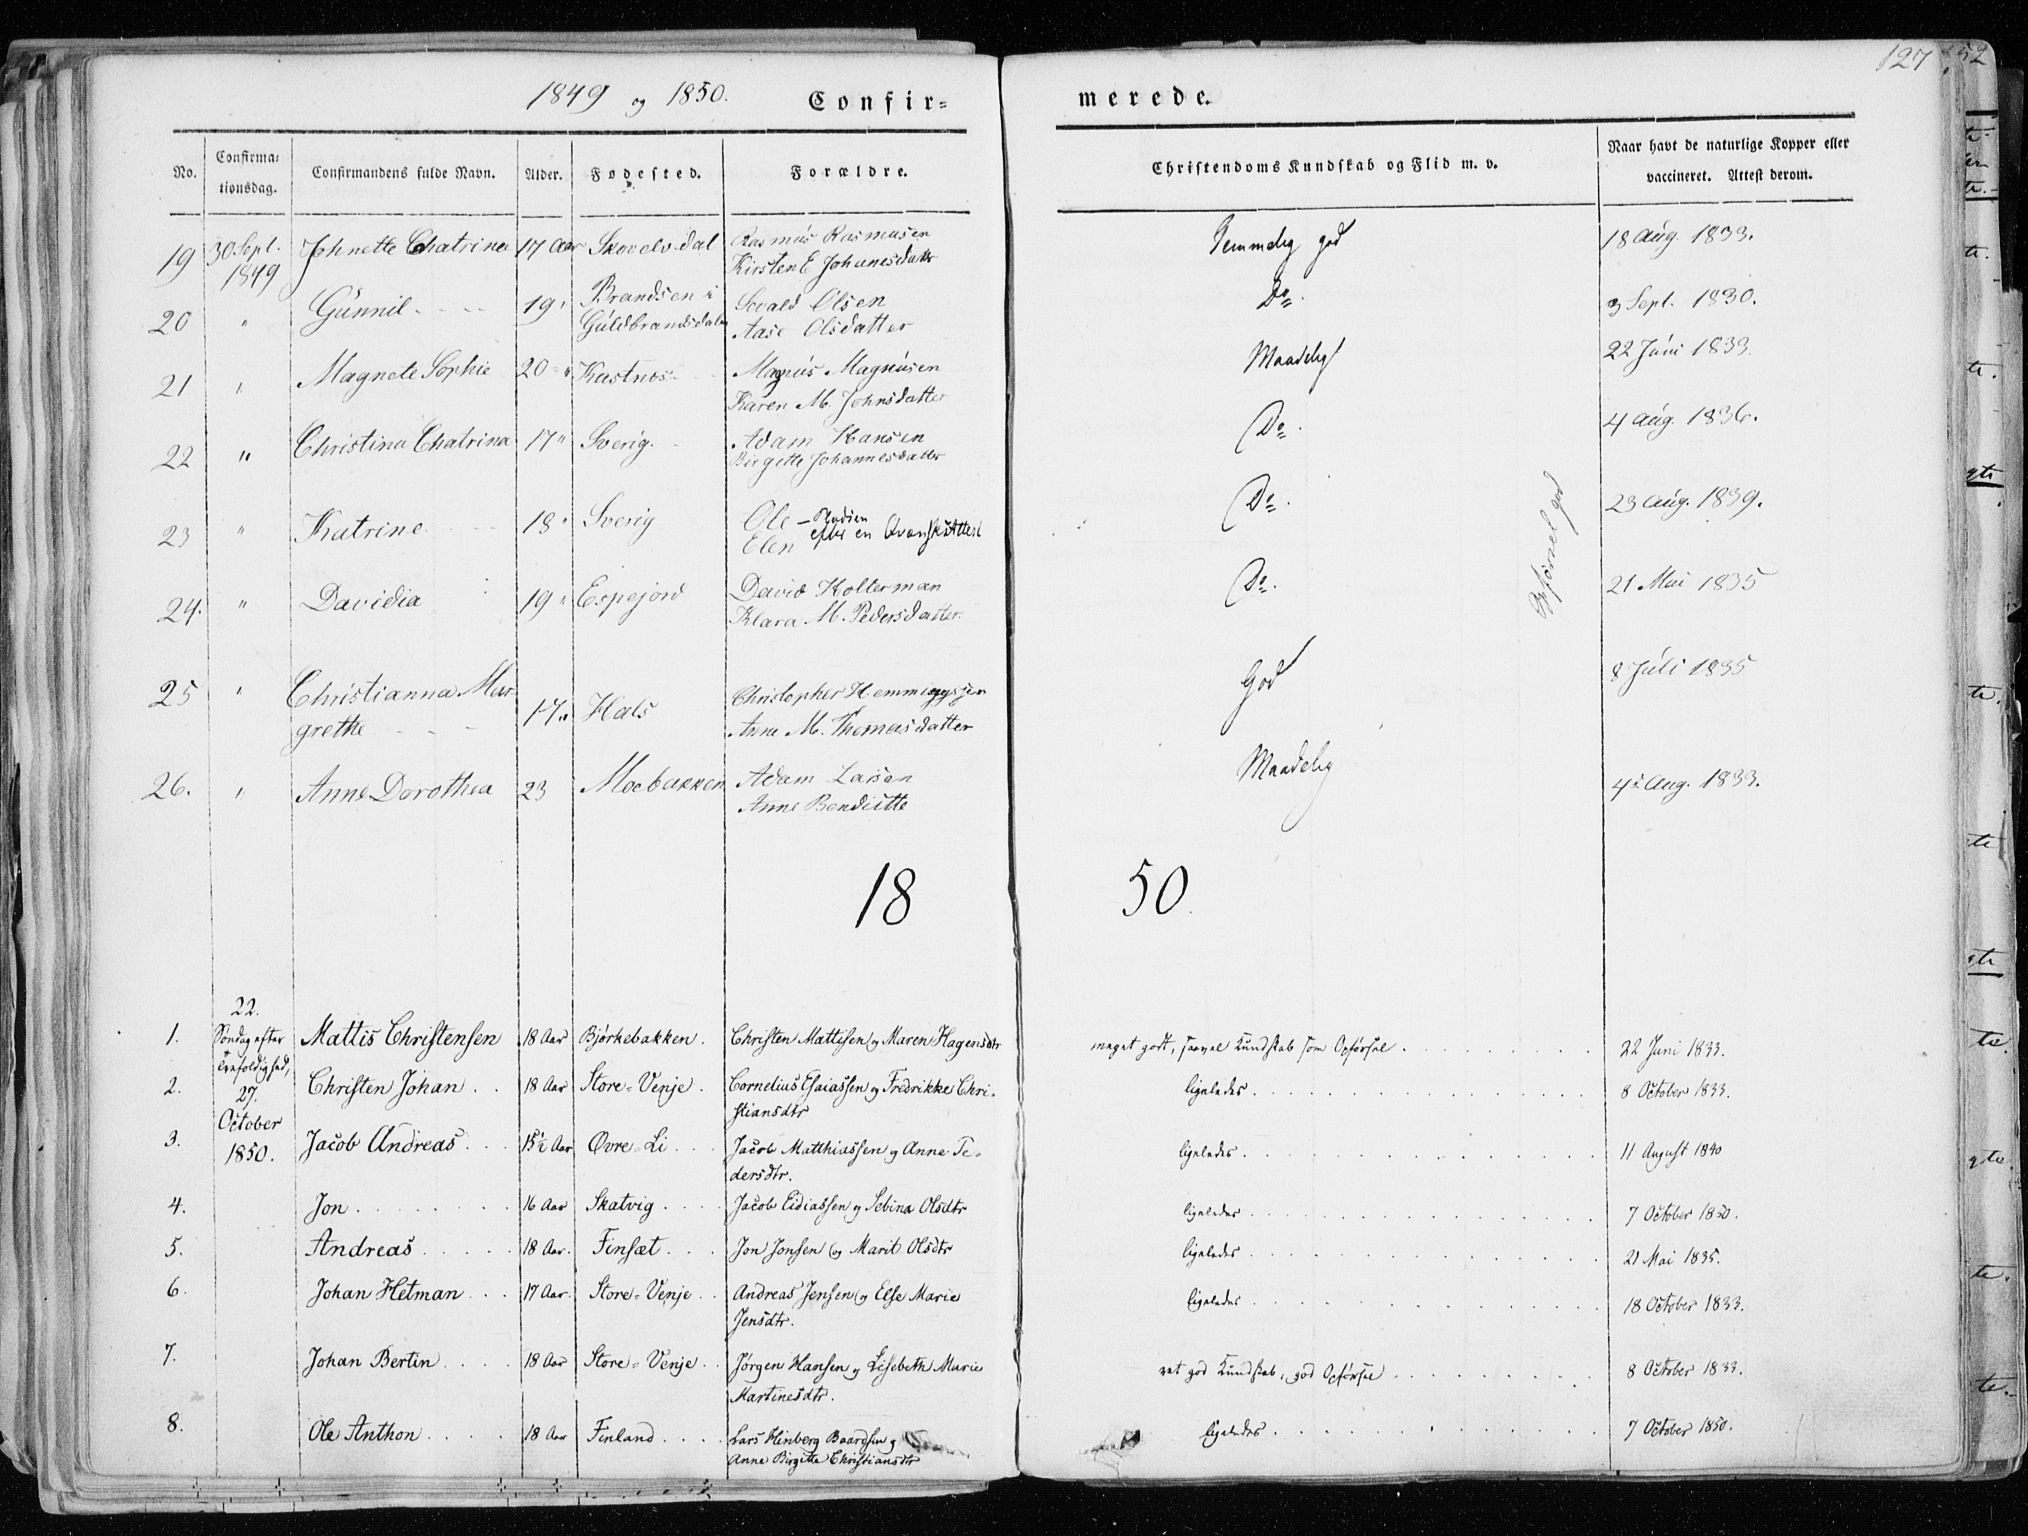 127
52
1849 og 1850.
Confir=
merede.
No.
Confirma=
tionsdag.
Confirmandens fulde Navn.
Alder.
Fødested.
Forældre.
Christendoms Kundskab og Flid m. v.
Naar havt de naturlige Kopper eller
vaccineret. Attest derom.
19 30 Sept. 1849 Johnette Chatrine 17 Aar Skovelvdal Rasmus Rasmusen Temmelig god 18 Aug. 1833.
Kirsten E Johanesdattr
20 " Gunnil 19 " Brandsen i Sivald Olsen Do. 3 Sept. 1830.
Guldbrandsdalen Aase Olsdatter
21 " Magnete Sophie 20 " Kastnes Magnus Magnusen Maadelig 22 Juni 1833.
Karen M. Johnsdatter
22 " Christina Chatrina 17 " Sverig. Adam Hansen Do. 4 Aug. 1836.
Birgitte Johannesdatter
23 " Katrine 18 " Sverig Ole – Madsen Do. 23 Aug. 1839.
Elen efter en Qvansk Attest
Opførsel god
24. " Davidia 19 " Espejord David Holterman Do. 21 Mai 1835
Klara M. Pedersdatter.
25 " Christianna Mar God 8 Juli 1835
grethe 17 " Hals Christopher Hemmingssen
Anne M. Thomasdatter
26. " Anne Dorothea 23 Moebakken Adam Larsen Maadelig 4 Aug. 1833.
Anne Bendictte
18 50.
1. 22. Søndag efter Trefoldighed, 27. October 1850. Mattis Christensen 18 Aar Bjørkebakken. Christen Mattisen og Maren Hagensdtr meget godt, saavel Kundskab som Opførsel 22 Juni 1833.
2. Christen Johan 18 Aar Store=Venje. Cornelius Esaiassen og Fredrikke Chri- ligeledes 8 October 1833.
stiansdtr
3. Jacob Andreas 15½ Aar Øvre=Li Jacob Matthiassen og Anne Pe- ligeledes 11 August 1840
dersdtr.
4. Jon 16 Aar Skatvig Jacob Eidiassen og Sebina Olsdtr ligeledes 7 October 1850.
5. Andreas 18 Aar. Finsæt Jon Jonsen og Marit Olsdtr ligeledes 21 Mai 1835.
6. Johan Hetman 17 Aar. Store=Venje Andreas Jensen og Else Marie ligeledes 18 October 1833.
Jensdtr.
7. Johan Bertin 18 Aar Store=Venje Jørgen Hansen og Lisebeth Marie ret god Kundskab, god Opførsel 8 October 1833.
Martinesdtr.
8. Ole Anthon 18 Aar Finland Lars Hinberg Baardsen og ligeledes 7 October 1850.
Anne Birgitte Christiansdtr